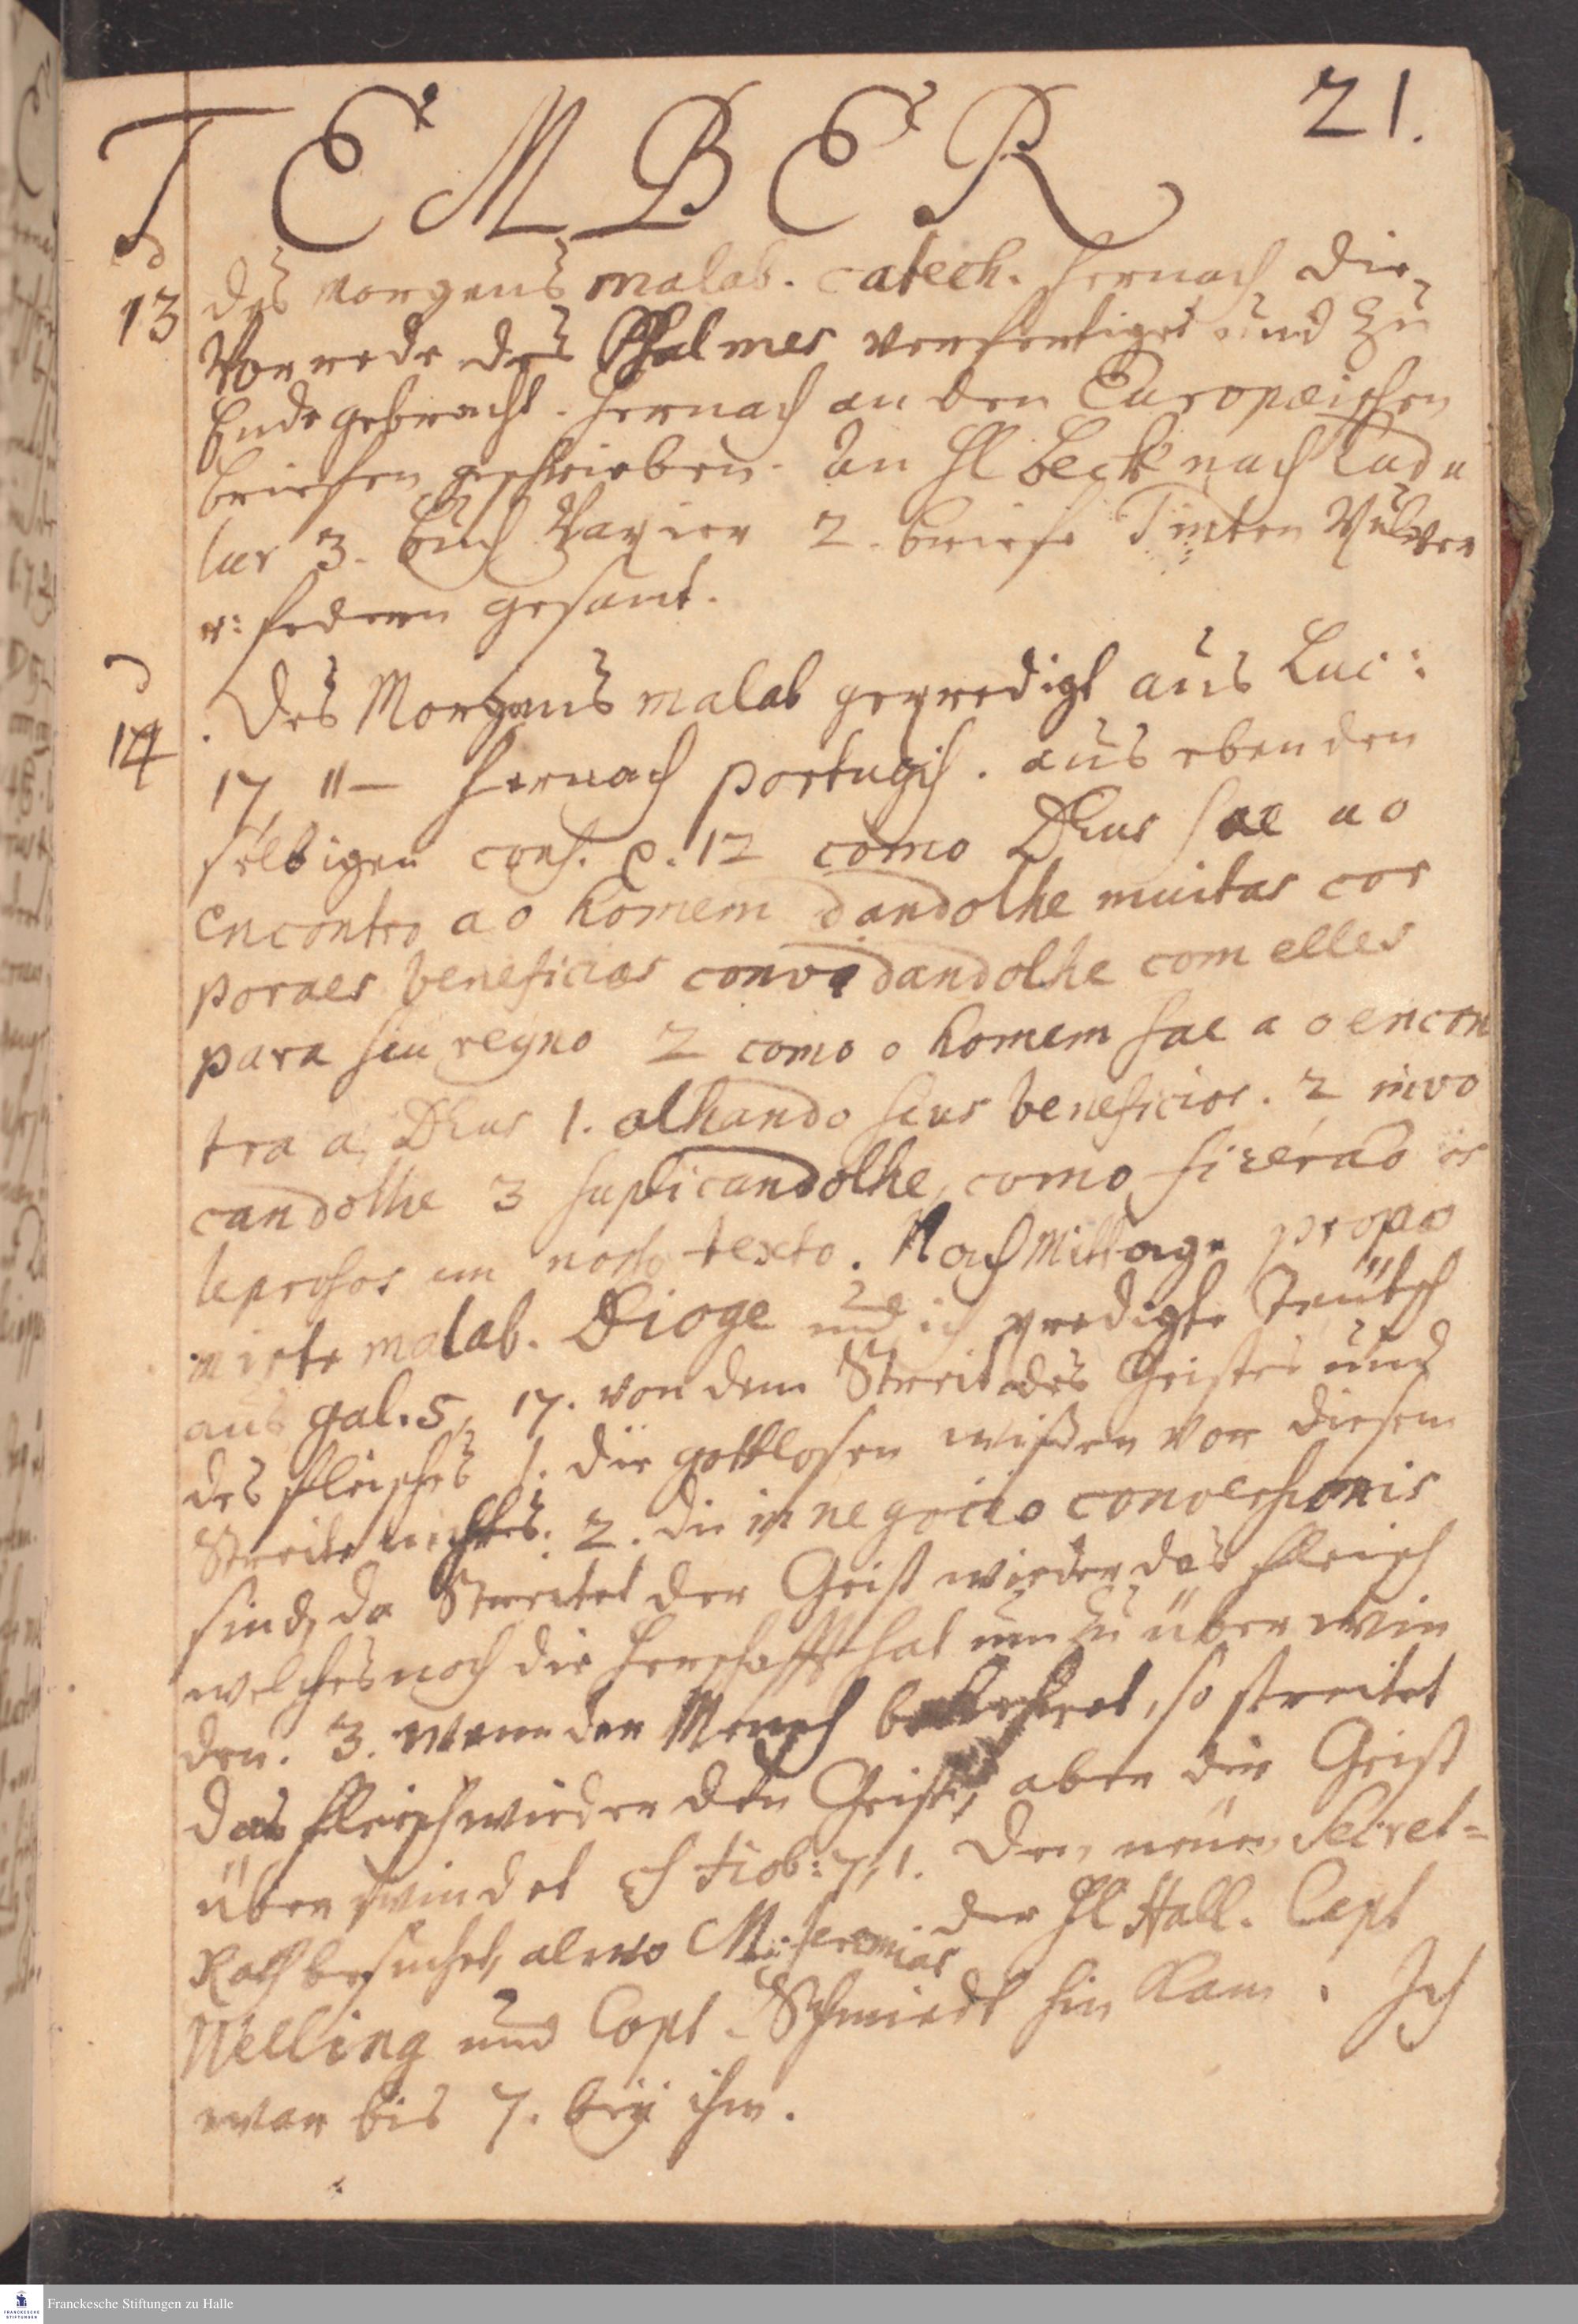 21.
TEMBER
d
13 des morgens malab. catech. hernach die
Vorrede des Psalmes verfertiget und zu
Ende gebracht. hernach an den Europæischen
briefen geschrieben. An Hl Beck nach Cudu
lur 3. Buch Papier 2. briefe Tinten Pulver
u: federn gesant.
d
14 Des Morgens malab gepredigt aus Luc:
17, 11 – hernach portugis. aus eben den
selbigen conf. p. 12 como Deus sae ao
encontro ao homem dandolhe muitas cor
poraes beneficias convidandolhe com elles
para seu regno 2 como o homem sae a o encon
tra a Deus 1. olhando seus beneficios. 2 invo
candolhe 3 suplicandolhe, como fizerão os
leprosos em nosso texto. Nachmittage propo
nirte malab. Dioge und ich predigte Teütsch
aus gal. 5, 17. von dem Streit des Geistes und
des fleisches 1. die gottlosen wißen von diesem
Streite nichtes. 2. die in negocio conversionis
sind, da Streitet der Geist wieder das fleisch
welches noch die herschafft hat um zu überwin
den. 3. wenn der Mensch bekehret, so streitet
das fleisch wieder den Geist, aber der Geist
überwindet cf Hiob: 7, 1. Den neüen Secret=
Rath besuchet, alwo M. Jeremias der Hl Hall. Capt
Welling und Capt. Schmiedt hin kam. Ich
war bis 7. beÿ ihm.
Franckesche Stiftungen zu Halle